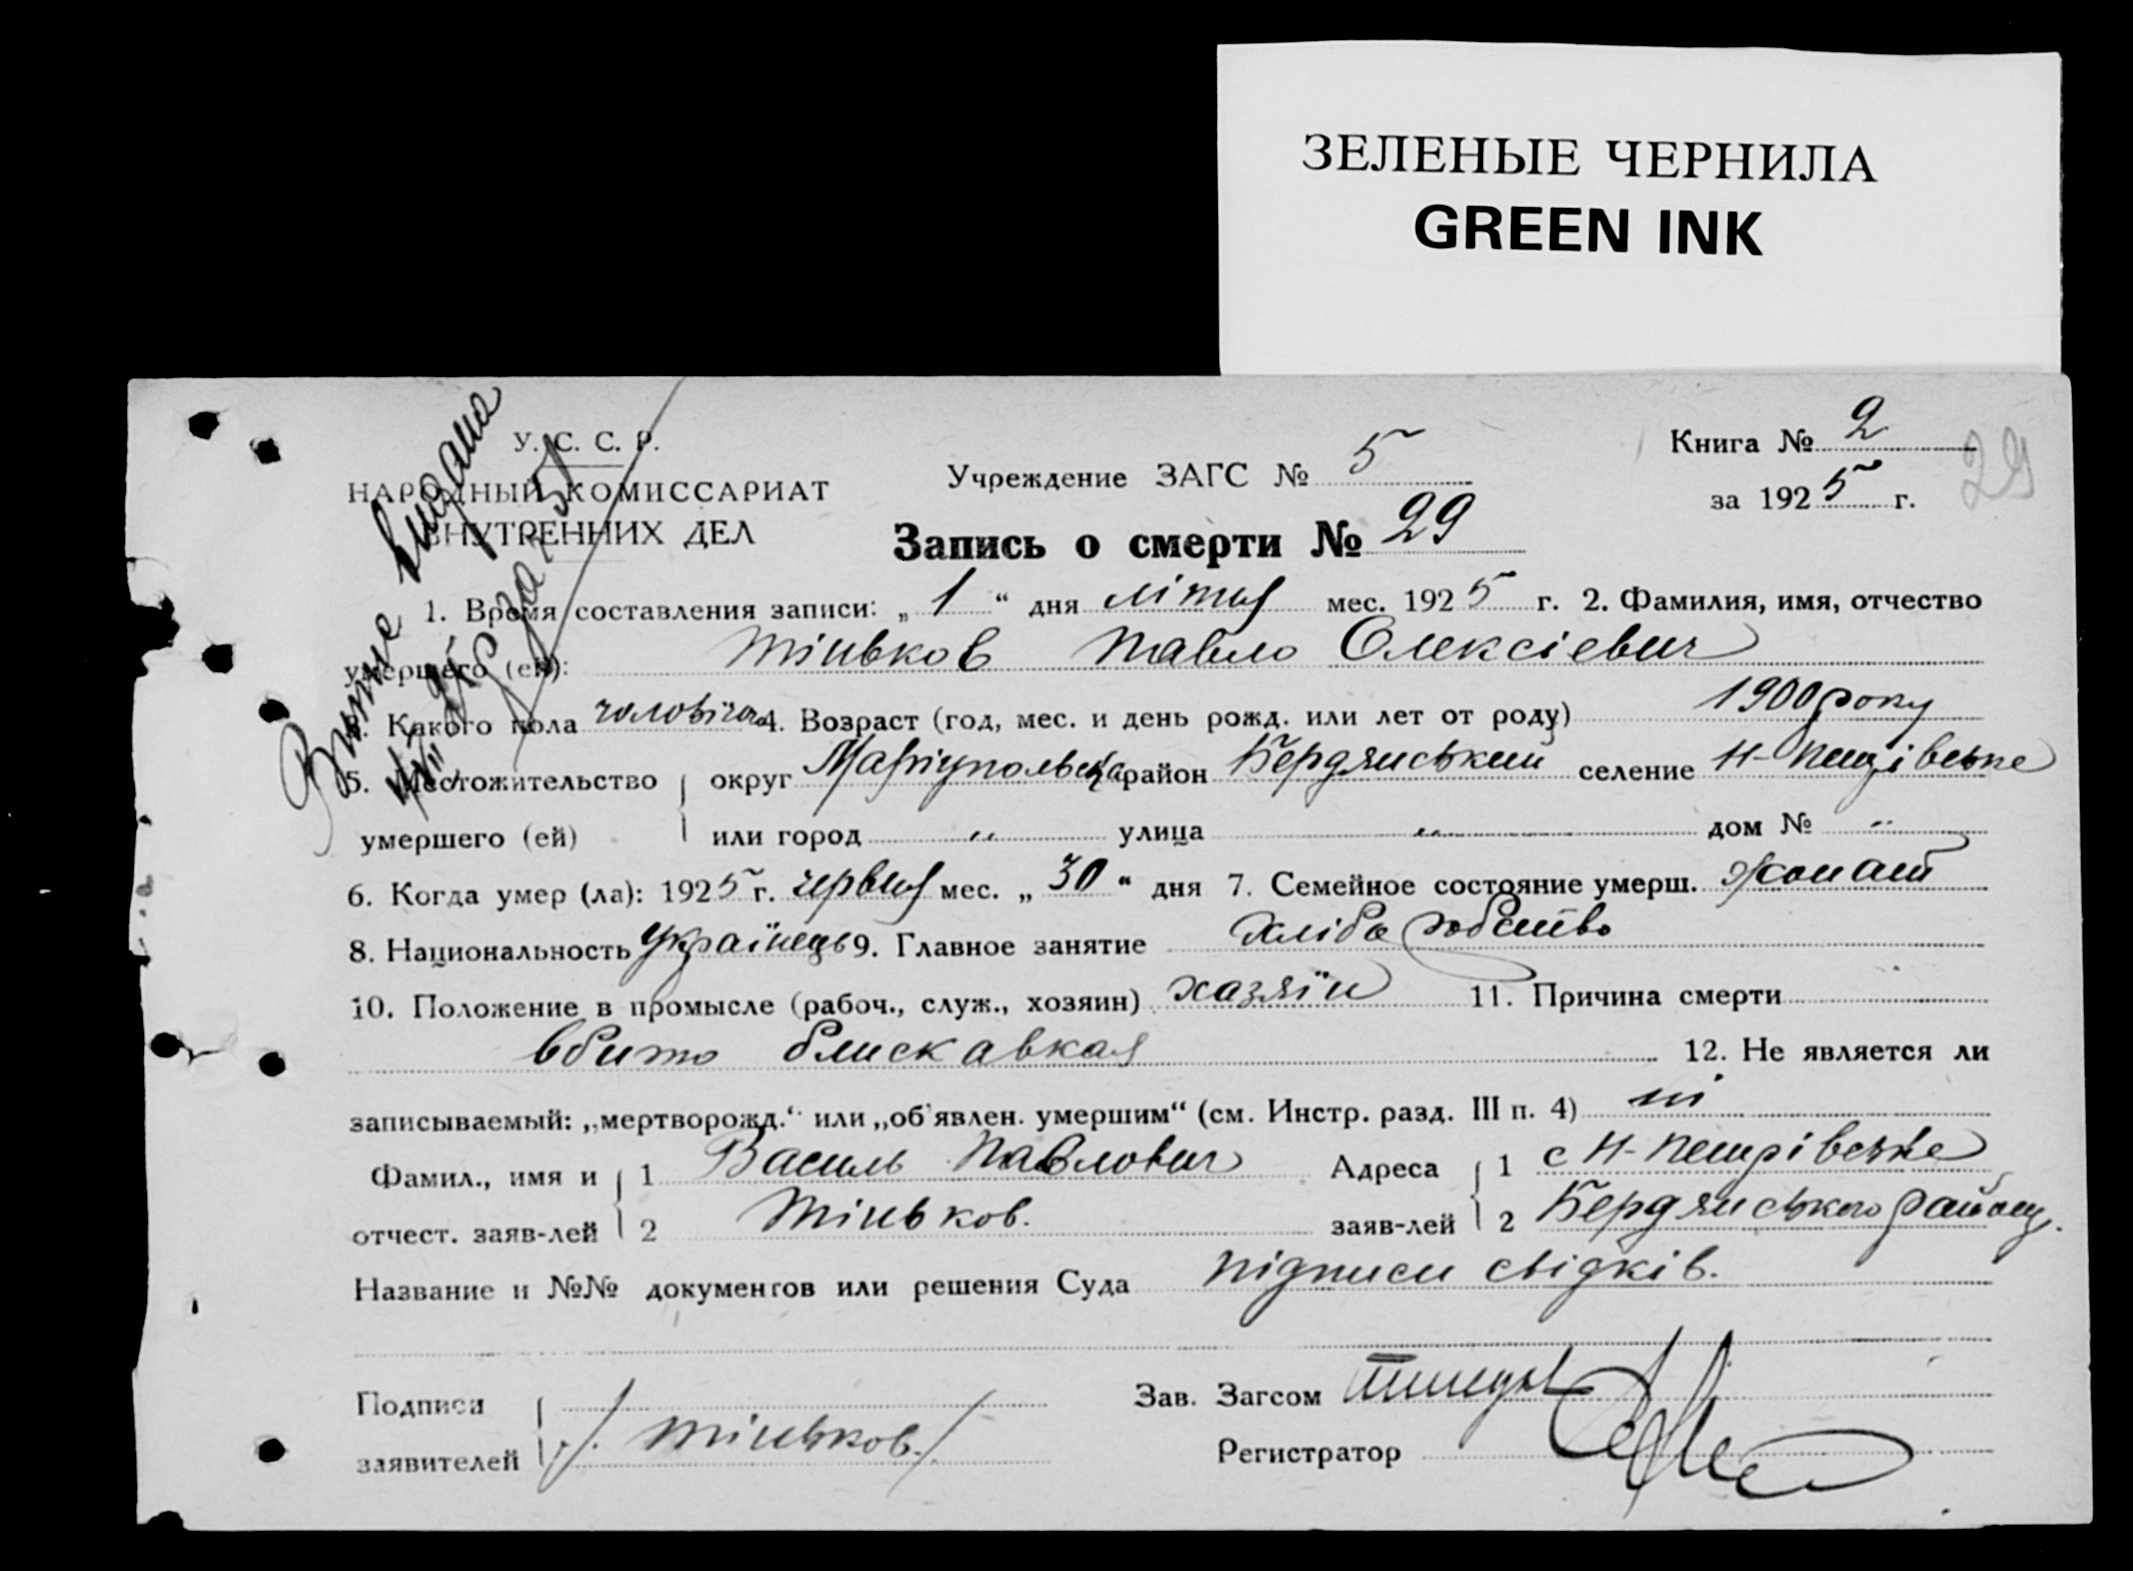 ЗЕЛЕНЫЕ ЧЕРНИЛА
GREEN INK
У. С. С. Р.
НАРОДНЫЙ КОМИССАРИАТ
ВНУТРЕННИХ ДЕЛ
Учреждение ЗАГС № 5
Книга № 2
за 1925 г.
29
Запись о смерти № 29
Витяг видано
1. Время составления записи: „ 1 “ дня літня мес. 1925 г. 2. Фамилия, имя, отчество
умершего (ей): Тіньков Павло Олексієвич
3. Какого пола чоловіча 4. Возраст (год, мес. и день рожд. или лет от роду) 1900 року
5. Местожительство округ Маріупольська район Бердянський селение Н-Петрівське
умершего (ей) или город „ улица „ дом № „
6. Когда умер (ла): 1925 г. червня мес. „ 30 “ дня 7. Семейное состояние умерш. жонат
8. Национальность Українець 9. Главное занятие Хліборобство
10. Положение в промысле (рабоч., служ., хозяин) хазяїн 11. Причина смерти
вбито блискавкая 12. Не является ли
записываемый: „мертворожд.“ или „об'явлен. умершим“ (см. Инстр. разд. III п. 4) ні
Фамил., имя и 1 Василь Павлович Адреса 1 с Н-Петрівське
отчест. заяв-лей 2 Тіньков. заяв-лей 2 Бердянського району.
Название и №№ документов или решения Суда підписи свідків.
Подписи Зав. Загсом
заявителей /Тіньков./ Регистратор